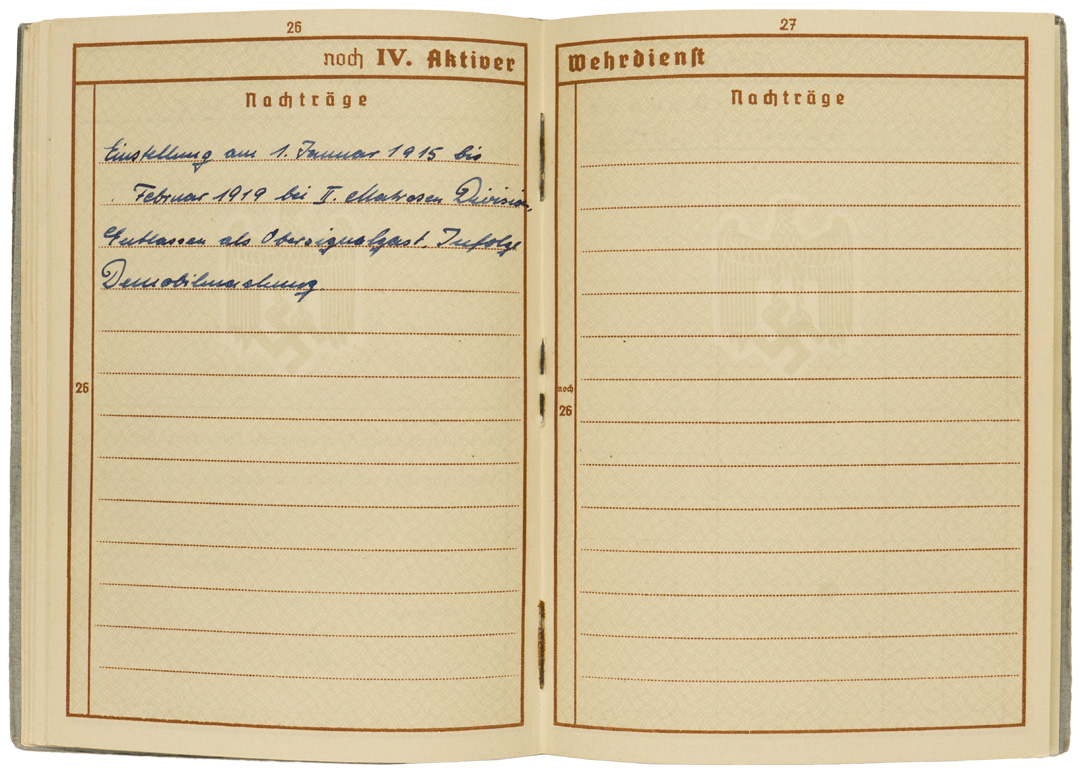 26
noch IV. Aktiver
Nachträge
Einstellung am 1. Januar 1915 bis
. Februar 1919 bei II. Matrosen Division,
Entlassen als Obersignalgast. Infolge
Demobilmachung.
26
27
Wehrdienst
Nachträge
noch
26